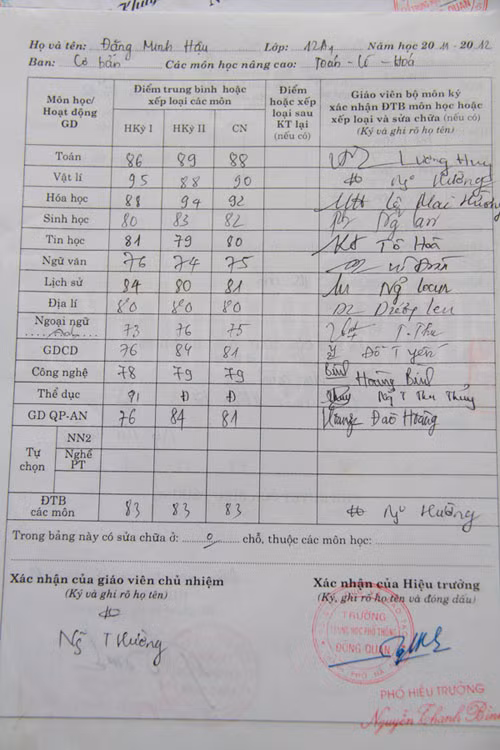 Họ và tên: Đặng Minh Hậu Lớp: 12A1 Năm học 2011-2012
Ban: Cơ bản Các môn học nâng cao: Toán - Lí - Hoá
Môn học/ Hoạt động GD | Điểm trung bình hoặc xếp loại các môn | Điểm hoặc xếp loại sau KT lại (nếu có) | Giáo viên bộ môn ký xác nhận ĐTB môn học hoặc xếp loại và sửa chữa (nếu có) (Ký và ghi rõ họ tên)
HKỳ I HKỳ II CN
Toán 86 89 88 Lương Huy
Vật lí 95 88 90 Ngô Hường
Hóa học 88 94 92 Mai Hường
Sinh học 80 83 82 Ng An
Tin học 81 79 80 Tô Hoà
Ngữ văn 76 74 75
Lịch sử 84 80 81 Ng Loan
Địa lí 80 80 80 Dương Len
Ngoại ngữ 73 76 75 T. Thu
GDCD 76 84 81 Đỗ T Yến
Công nghệ 78 79 79 Hoàng Bình
Thể dục Đ Đ Thủy Ng T Thu Thủy
GD QP-AN 76 84 81 Hoàng Đào Hoàng
Tự chọn
NN2
Nghề PT
ĐTB các môn 83 83 83 Ngô Hường
Trong bảng này có sửa chữa ở: 0 chỗ, thuộc các môn học:
Xác nhận của giáo viên chủ nhiệm Xác nhận của Hiệu trưởng
(Ký và ghi rõ họ tên) (Ký, ghi rõ họ tên và đóng dấu)
TRƯỜNG
TRUNG HỌC PHỔ THÔNG
ĐỒNG QUAN
Ng T Hường
PHÓ HIỆU TRƯỞNG
Nguyễn Thanh Bình